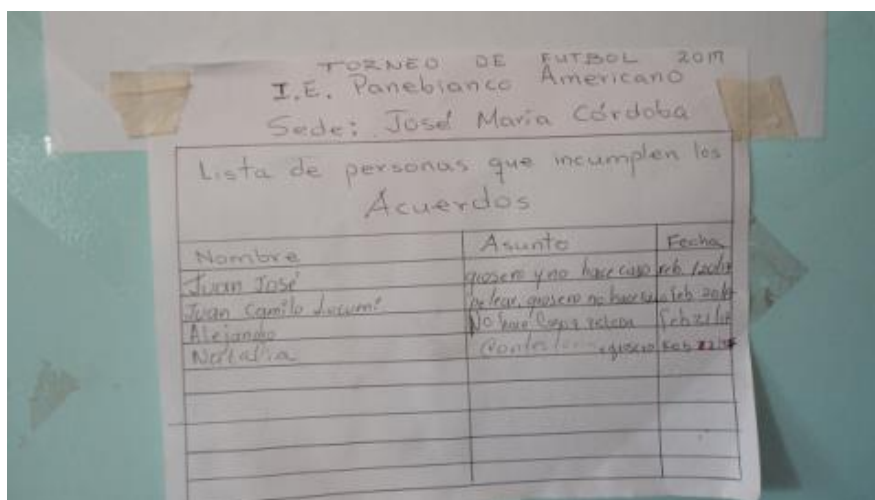 TORNEO DE FUTBOL 2017
I.E. Panebianco Americano
Sede: José María Córdoba
Lista de personas que incumplen los
Acuerdos
Nombre Asunto Fecha
Juan José grosero y no hace caso feb
Juan Camilo pelear, grosero no hace feb
Alejandro No hace
Natalia grosero Feb